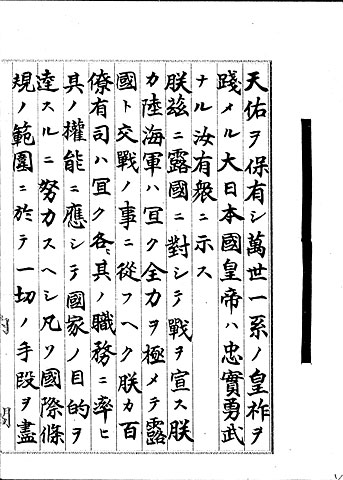 天佑ヲ保有シ萬世一系ノ皇祚ヲ
踐メル大日本國皇帝ハ忠實勇武
ナル汝有衆ニ示ス
朕玆ニ露國ニ對シテ戰ヲ宣ス朕
カ陸海軍ハ宜ク全力ヲ極メテ露
國ト交戰ノ事ニ從フヘク朕カ百
僚有司ハ宜ク各〻其ノ職務ニ率ヒ
其ノ權能ニ應シテ國家ノ目的ヲ
達スルニ努力スヘシ凡ソ國際條
規ノ範圍ニ於テ一切ノ手段ヲ盡
閣